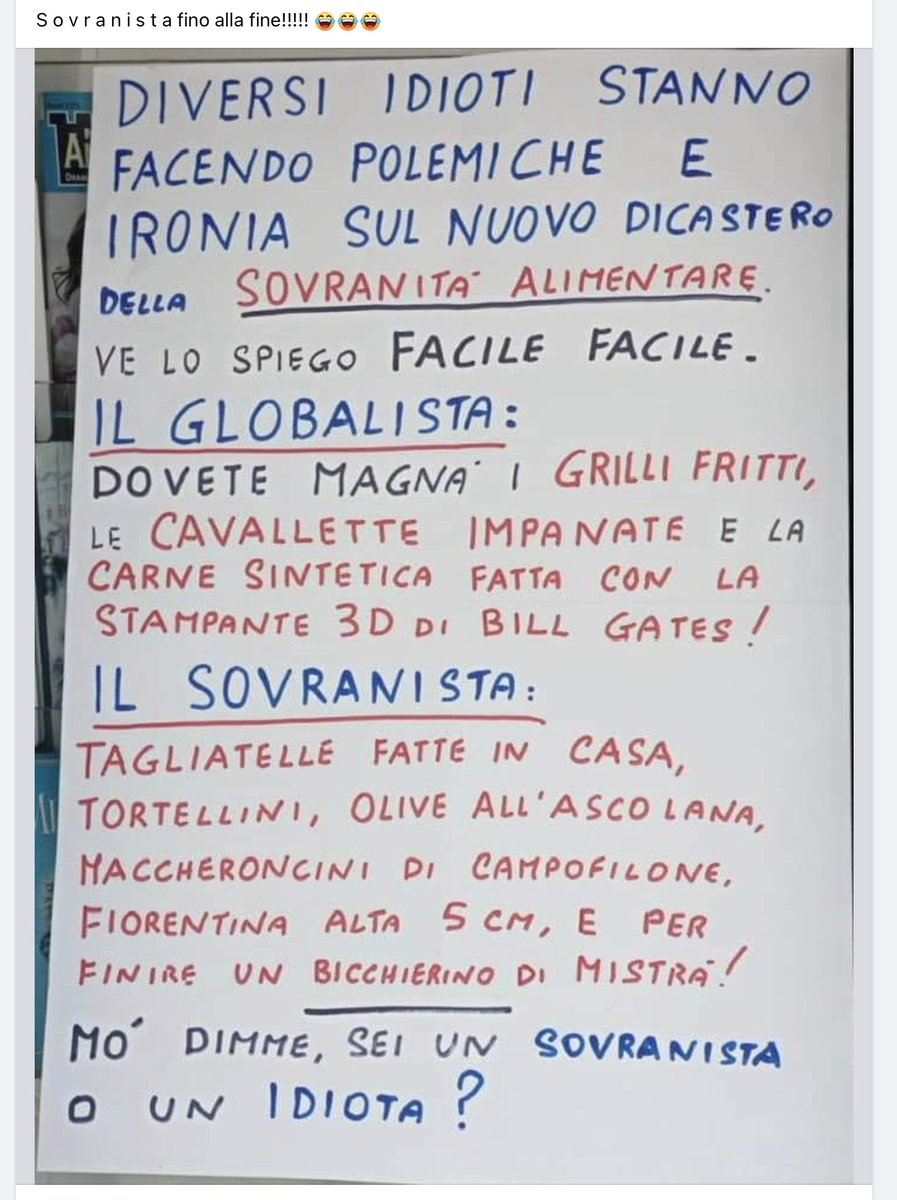 S o v r a n i s t a fino alla fine!!!!! 😂😂😂
DIVERSI IDIOTI STANNO
FACENDO POLEMICHE E
IRONIA SUL NUOVO DICASTERO
DELLA SOVRANITA' ALIMENTARE.
VE LO SPIEGO FACILE FACILE.
IL GLOBALISTA:
DOVETE MAGNA' I GRILLI FRITTI,
LE CAVALLETTE IMPANATE E LA
CARNE SINTETICA FATTA CON LA
STAMPANTE 3D DI BILL GATES!
IL SOVRANISTA:
TAGLIATELLE FATTE IN CASA,
TORTELLINI, OLIVE ALL'ASCOLANA,
MACCHERONCINI DI CAMPOFILONE,
FIORENTINA ALTA 5 CM, E PER
FINIRE UN BICCHIERINO DI MISTRA'!
MO' DIMME, SEI UN SOVRANISTA
O UN IDIOTA?